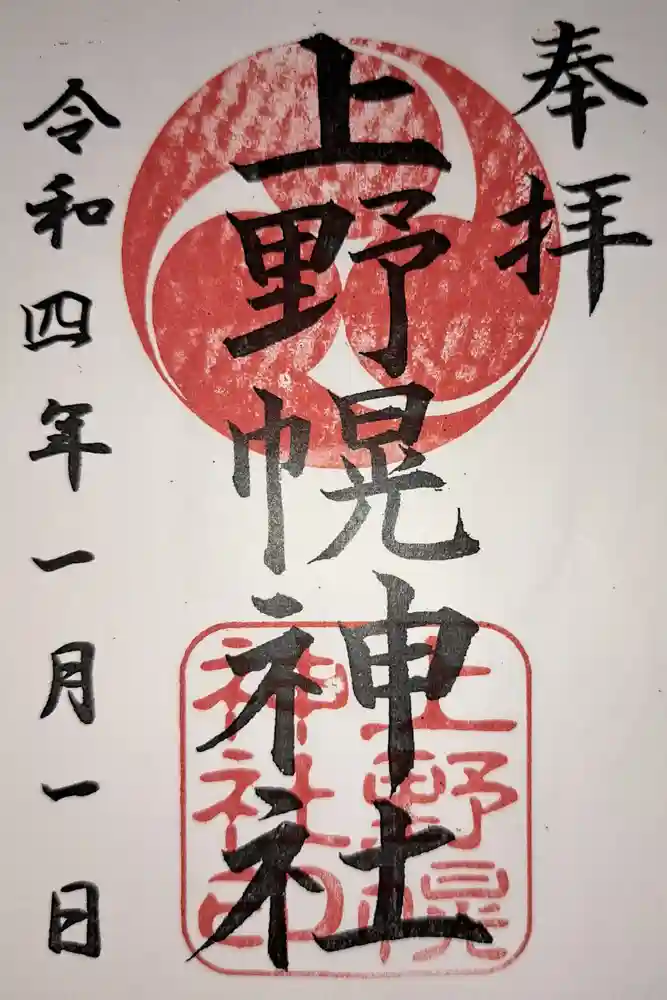 奉拝
上野幌神社
上野幌
神社印
令和四年一月一日